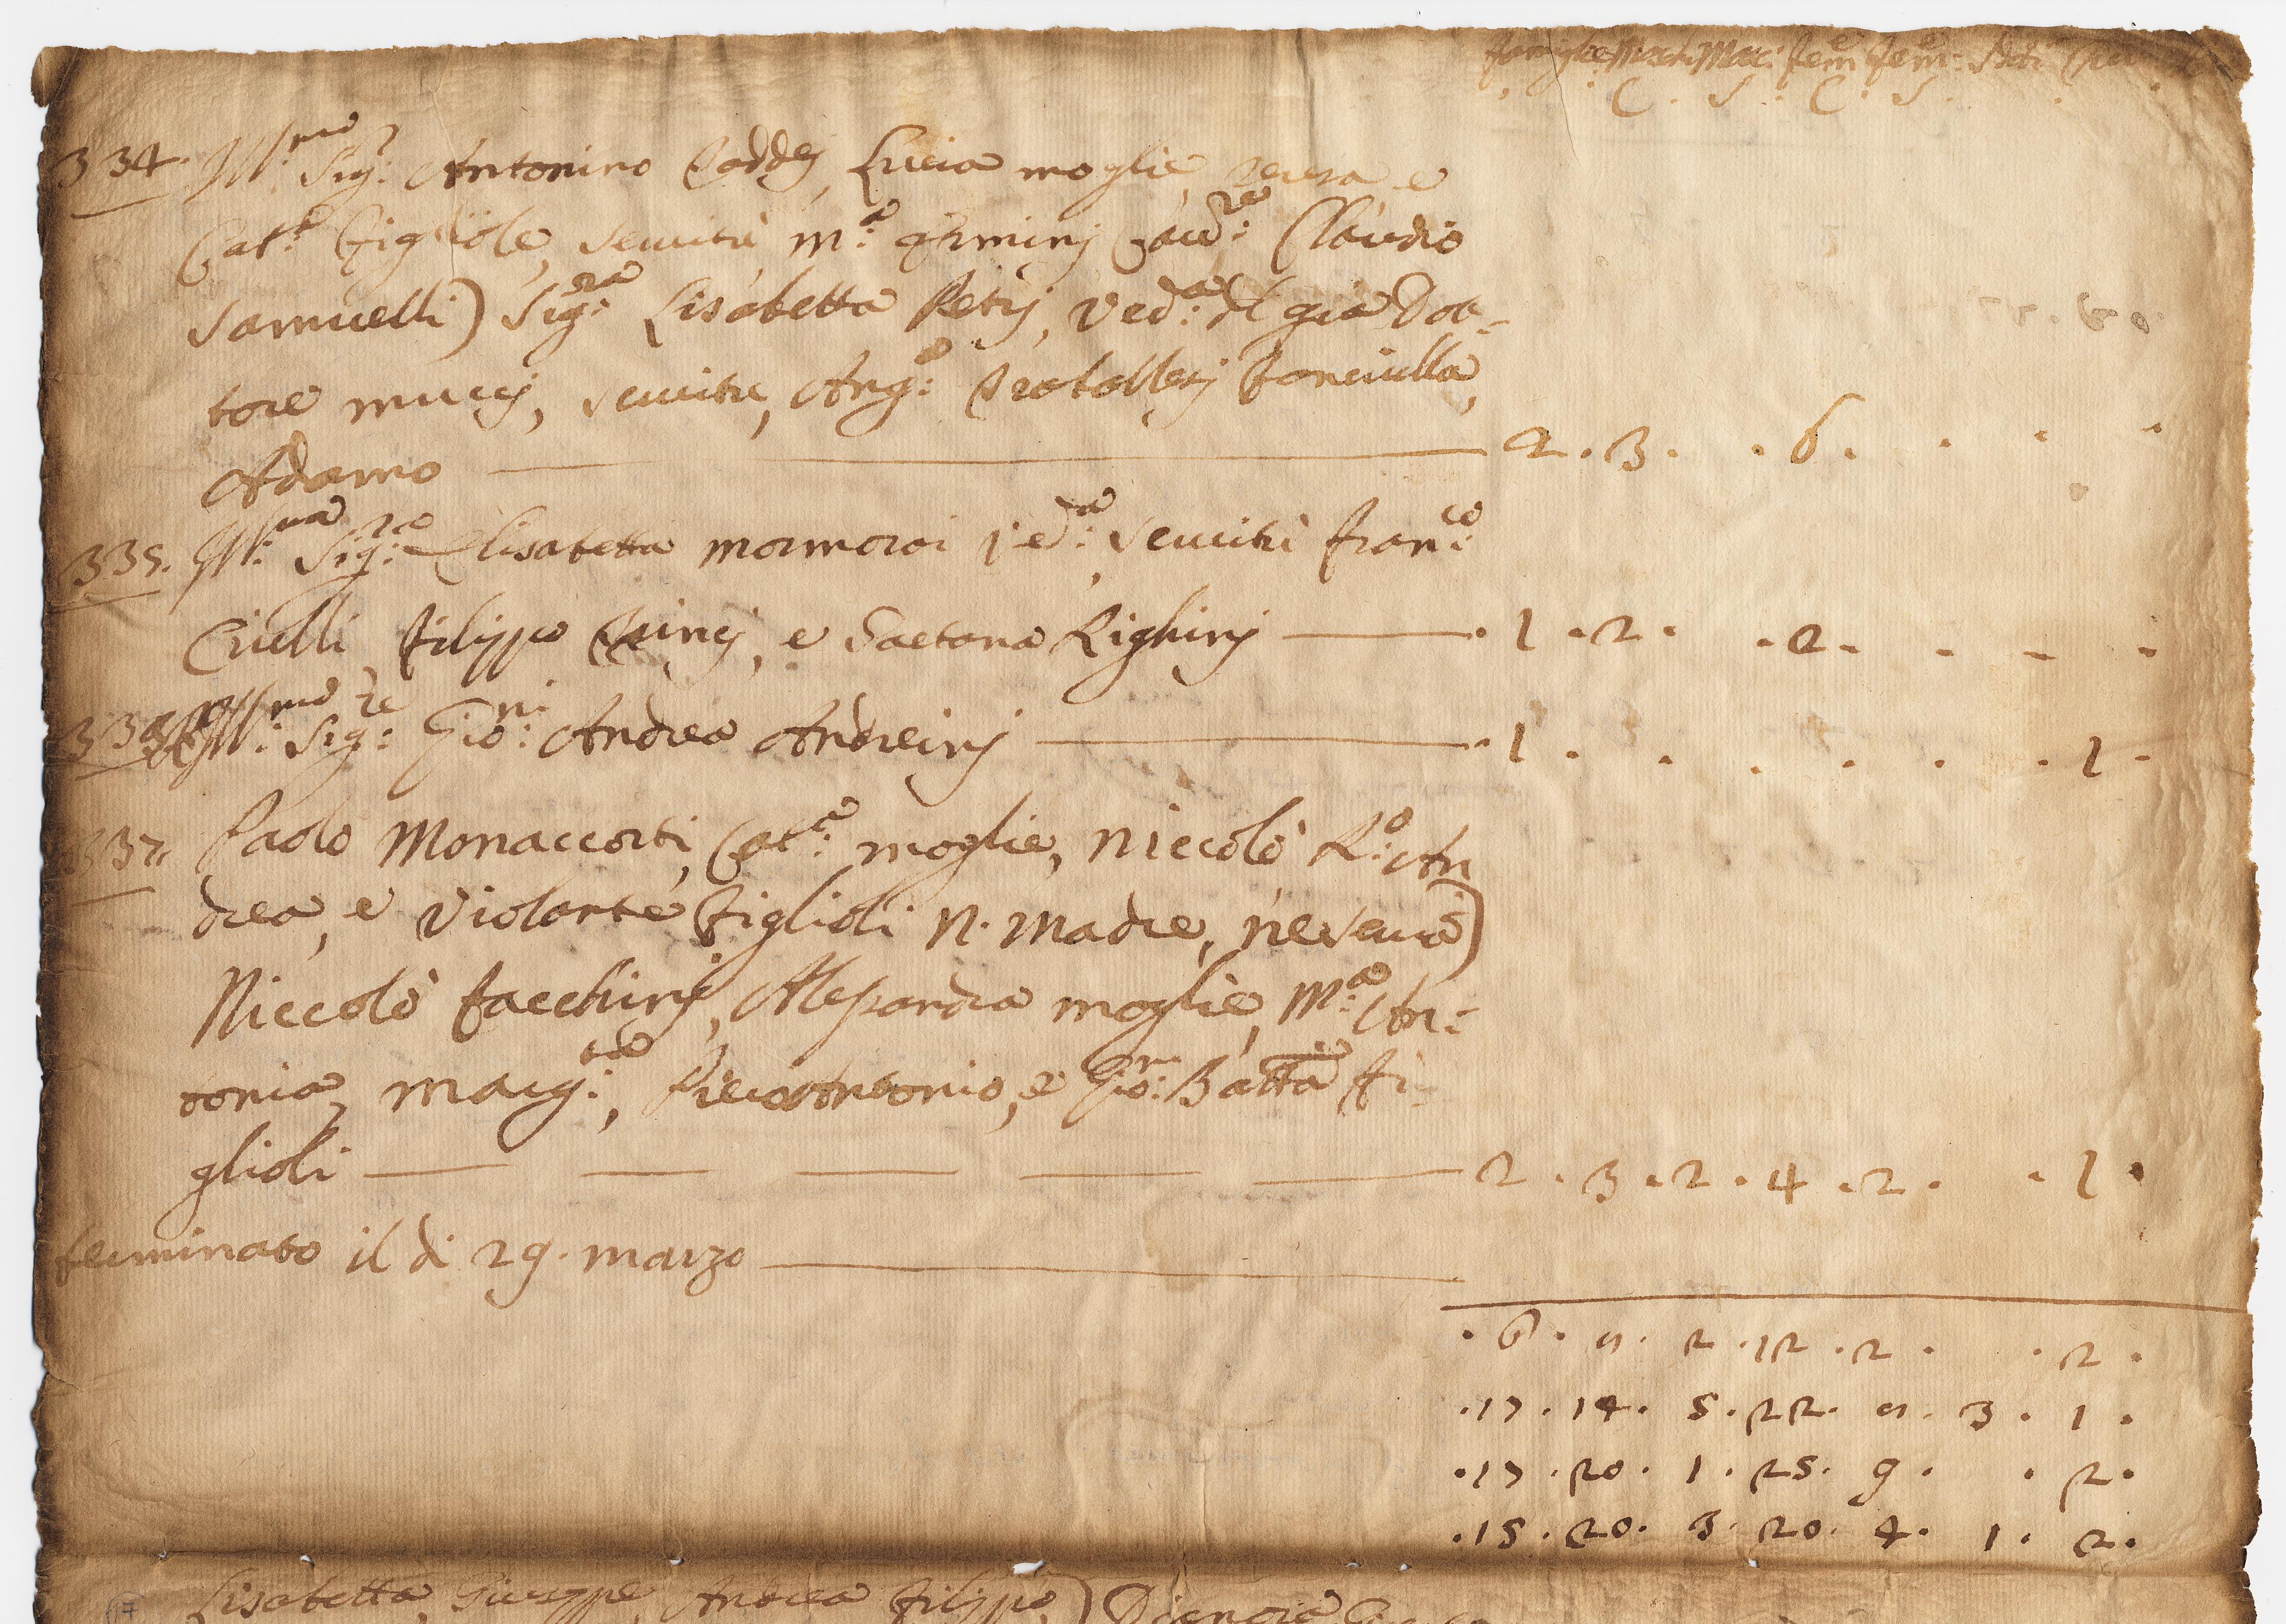 famiglie Masch. Mas: fem: fem:
C . S : C : S .
334. Ill:mo Sig: Antonino Taddej, Lucia moglie, Teresa e
Cat:a figliole, servitù, M:a Cav:re Claudio
Samuelli) Sig:ra Lisabetta Petrj, Ved:a del già Dot-
tore Muccj, servitù, Ang:a fanciulla,
Adamo 2 . 3 . . 6 . . . .
335. Ill:ma Sig:ra Elisabetta Ved:a, servitù Fran:co
Ciulli, Filippo e Gaetana Righinj . 1 . 2 . . 2 . . . .
336. Ill:mo Sig:re Gio:ni Andrea Andreinj . 1 . . . . . . 1 .
337. Paolo Monaccorti, Cat:a moglie, Niccolò R:o An
drea, e Violante figlioli N. Madre, ne serva)
Niccolò Facchinj, Alessandra moglie, M:a An:
tonia, Marg:ta, Pierantonio, e Gio: Batta fi-
glioli 2 . 3 . 2 . 4 . 2 . . 1 .
terminato il dì 29. marzo
. 6 . 5 . 2 . 12 . 2 . . 2 .
. 17 . 14 . 5 . 22 . 5 . 3 . 1 .
. 17 . 20 . 1 . 25 . 9 . . 2 .
. 15 . 20 . 3 . 20 . 4 . 1 . 2 .
Lisabetta, Giuseppe, Andrea Filippo)